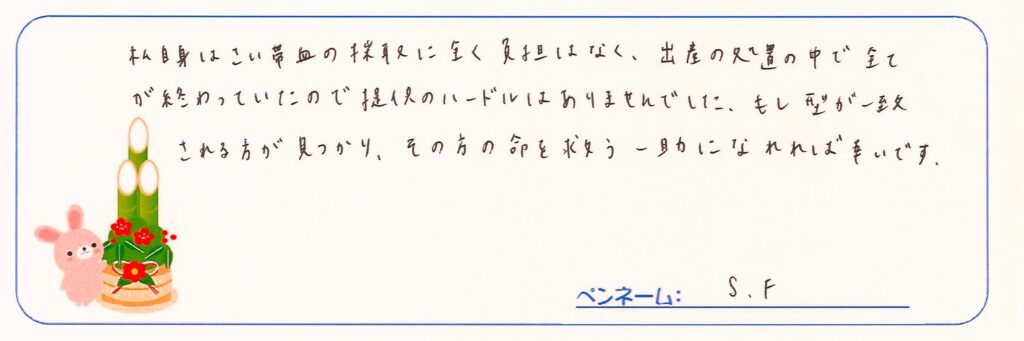 私自身はさい帯血の採取に全く負担はなく、出産の処置の中で全て
が終わっていたので提供のハードルはありませんでした。もし型が一致
される方が見つかり、その方の命を救う一助になれれば幸いです。
ペンネーム: S.F